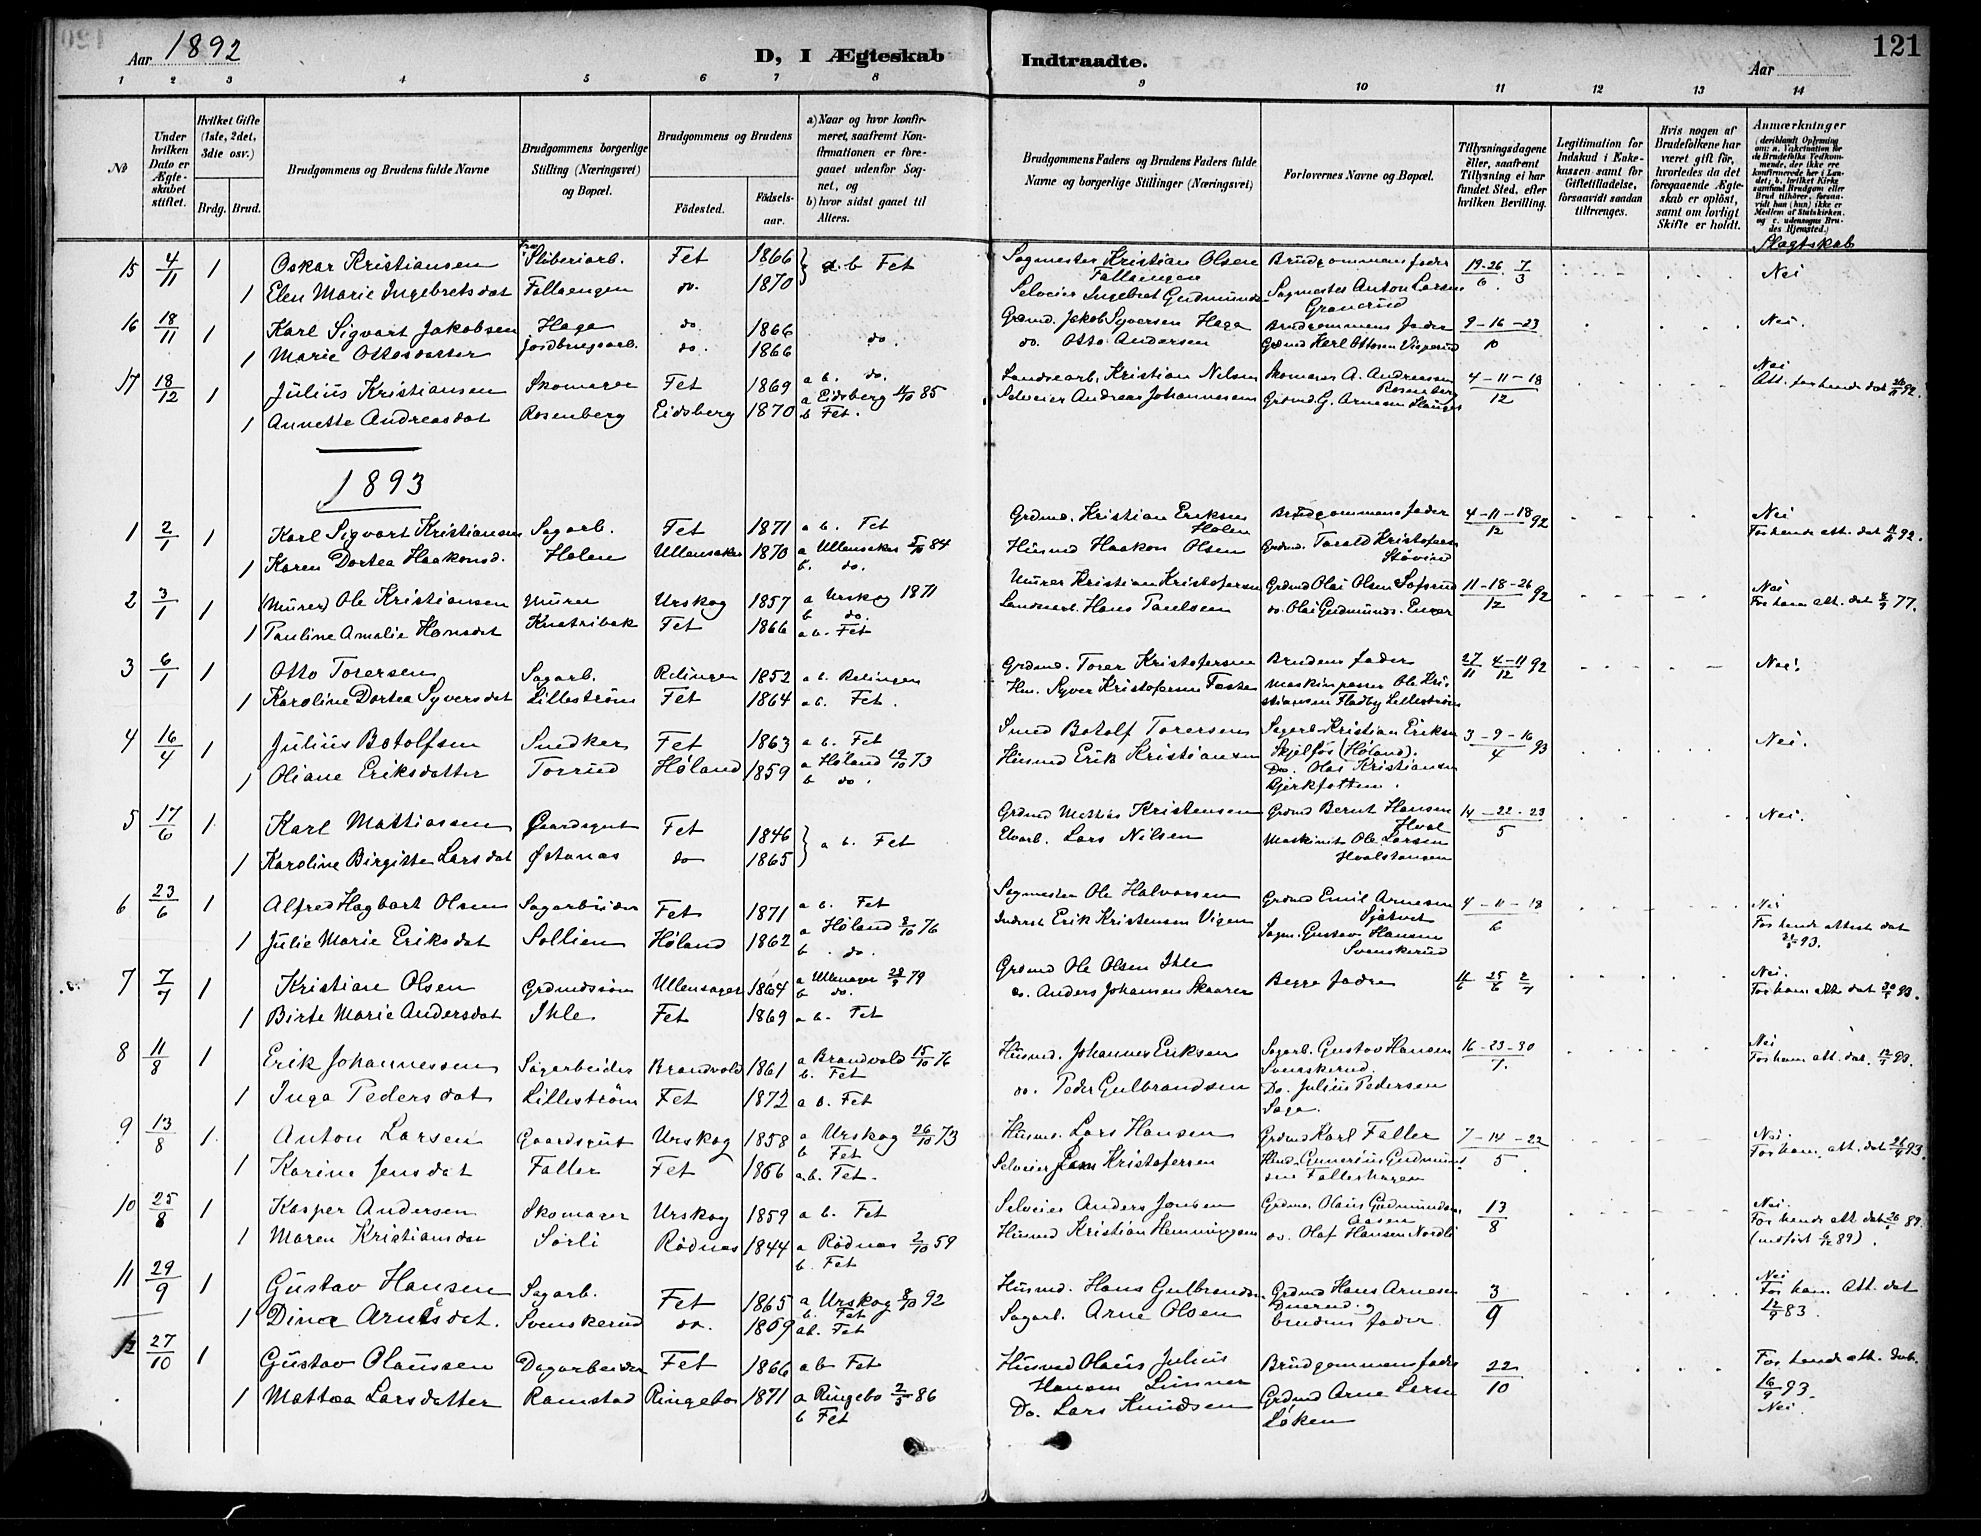 121
Aar 1892
D, I Ægteskab
Indtraadte.
Aar
1 2 3 4 5 6 7 8 9 10 11 12 13 14
No
Under hvilken Dato er Ægteskabet stiftet.
Hvilket Gifte (1ste, 2det, 3die osv.)
Brdg. Brud.
Brudgommens og Brudens fulde Navne
Brudgommens borgerlige Stilling (Næringsvei) og Bopæl.
Brudgommens og Brudens
Fødested.
Fødselsaar.
a) Naar og hvor konfirmeret, saafremt Konfirmationen er foregaaet udenfor Sognet, og
b) hvor sidst gaaet til Alters.
Brudgommens Faders og Brudens Faders fulde Navne og borgerlige Stillinger (Næringsvei)
Forlovernes Navne og Bopæl.
Tillysningsdagene eller, saafremt Tillysning ei har fundet Sted, efter hvilken Bevilling.
Legitimation for Indskud i Enkekassen samt for Giftetilladelse, forsaavidt saadan tiltrænges.
Hvis nogen af Brudefolkene har været gift før, hvorledes da det foregaaende Ægteskab er opløst, samt om lovligt Skifte er holdt.
Anmærkninger
Slagtskab
15 4/11 1 Oskar Kristiansen Sliberiarb. Fet 1866 a. b Fet Sagmester Kristian Olsen Brudgommens fader 19-26/6 7/3 Nei
Fallaengen
1 Elen Marie Ingebretsdat Fallaengen do. 1870 Selveier Ingebret Gudmunds Sagmester Anton Larsen
Granerud
16 18/11 1 Karl Sigvart Jakobsen Haga do 1866 do. Grdmd. Jakob Syversen Haga Brudgommens fader 9-16-23/10 Nei.
1 Marie Ottosdatter Jordbrugsarb. do. 1866 do. Otto Andersen Grdmd Karl Ottosen
17 18/12 1 Julius Kristiansen Skomager Fet 1869 a b. do. Landvearb. Kristian Nilsen Skomager A. Andreassen Rosenberg 4-11-18/12 Nei
Att. for hende dat 92.
1 Annette Andreasdat Rosenberg Eidsberg 1870 a Eidsberg 85 b Fet. Selveier Andreas Johannesen Grdmd. G. Arnesen
1893
1 2/1 1 Karl Sigvart Kristiansen Sagarb. Fet 1871 a b. Fet Grdmd. Kristian Eriksen Holen Brudgommens fader 4-11-18/12 92 Nei
For hende att. dat 92.
1 Karen Dortea Haakonsd. Holen Ullensaker 1870 a Ullensaker 84 b. do. Husmd Haakon Olsen Grdmd. Torald Kristofersen Støvind
2 3/1 1 (Murer) Ole Kristiansen Murer Urskog 1857 a Urskog 1871 b do. Murer Kristian Kristofersen Grdmd Olai Olsen Tofsrud 11-18-26/12 92 Nei
For ham att. dat 8/9 77.
1 Pauline Amalie Hansdat Knatribak Fet 1866 a b. Fet Landvearb. Hans Paulsen do. Olai Gudmunds. Enger
3 6/1 1 Otto Torersen Sagarb. Relingen 1852 a b. Relingen Grdmd. Torer Kristofersen Brudens fader 27/11 4-11/12 92 Nei.
1 Karoline Dortea Syversdat Lillestrøm Fet 1864 a b. Fet. Hm. Syver Kristofersen Maskinpasser Ole Kristiansen Fladby Lillestrøm
4 16/4 1 Julius Botolfsen Snedker Fet 1863 a b. Fet Smed Botolf Torersen Sagarb. Kristian Eriksen 3-9-16/4 93 Nei.
1 Oliane Eriksdatter Torrud Høland 1859 a Høland 19/10 73 b do. Husmd Erik Kristiansen Skjelfos (Høland).
Do. Olai Kristiansen
Gjerkfotten.
5 17/6 1 Karl Mattiassen Gaardsgut Fet 1846 a b. Fet Grdmd Mattias Kristensen Grdmd Bernt Hansen Hval 14-22-23/5 Nei.
1 Karoline Birgitte Larsdat Østanas do 1865 Elvarb. Lars Nilsen Maskinist Ole Larsen
Hvalstangen
6 23/6 1 Alfred Hagbart Olsen Sagarbeider Fet 1871 a b. Fet Sagmester Ole Halvorsen Grdmd Emil Arnesen 4-11-18/6 Nei
1 Julie Marie Eriksdat Sollien Høland 1862 a Høland 8/10 76 b. do. Inderst Erik Kristensen Vigen Sagm. Gustav Hansen Svenskerud For hende attest dat 93.
7 7/7 1 Kristian Olsen Grdmdssøn Ullensager 1864 a Ullensager 79 b do. Grdmd Ole Olsen Ihle Begge fædre 25/6 2/7 Nei.
For ham att dat 93.
1 Birte Marie Andersdat Ihle Fet 1869 a b. Fet do. Anders Johansen Skaarer
8 11/8 1 Erik Johannessen Sagarbeider Brandvold 1861 a Brandvold 15/10 76 b. Fet Husmd. Johannes Eriksen Sagarb. Gustav Hansen 16-23-30/7. Nei
For ham att. dat. 93.
1 Inga Pedersdat Lillestrøm Fet 1872 a b. Fet do. Peder Gulbrandsen Svenskerud.
Do. Julius Pedersen
Saga.
9 13/8 1. Anton Larsen Gaardsgut Urskog 1858 a Urskog 26/10 73 b Fet Husmd. Lars Hansen Grdmd Karl Faller 7-14-22/5. Nei.
For ham. att. dat 93.
1 Karine Jensdat Faller Fet 1866 a. b. Fet. Selveier Jens Kristofersen Hmd. Gunerius Gudmundsen Fallerhagen
10 25/8 1 Kasper Andersen Skomager Urskog 1859 a b. Fet Selveier Anders Jonsen Grdmd. Olaus Gudmundsen Aasen 13/8 Nei.
For hende att dat 89.
1 Maren Kristiansdat Sørli Rødnes 1844 a Rødnes 2/10 59 b. Fet Husmd Kristian Hemmingsen do. Olaf Hansen Nordli (indført 89).
11 29/9 1 Gustav Hansen Sagarb. Fet 1865 a Urskog 92 b. Fet Husmd. Hans Gulbrandsen Grdmd Hans Arnesen 3/9 Nei
For ham. Att. dat
12/9 83.
1 Dina Arnesdat. Svenskerud do. 1869 ab. Fet Sagarb. Arne Olsen Duerud og
brudens fader.
12 27/10 1 Gustav Olaussen Dagarbeider Fet 1866 a b Fet Husmd Olaus Julius Brudgommens fader 22/10 For hende att. dat.
16/9 93.
Nei.
Hansen Linner
1 Mattea Larsdatter Ramstad Ringebo 1871 a Ringebo 86 b Fet Do. Lars Knudsen Grdmd Arne Løken